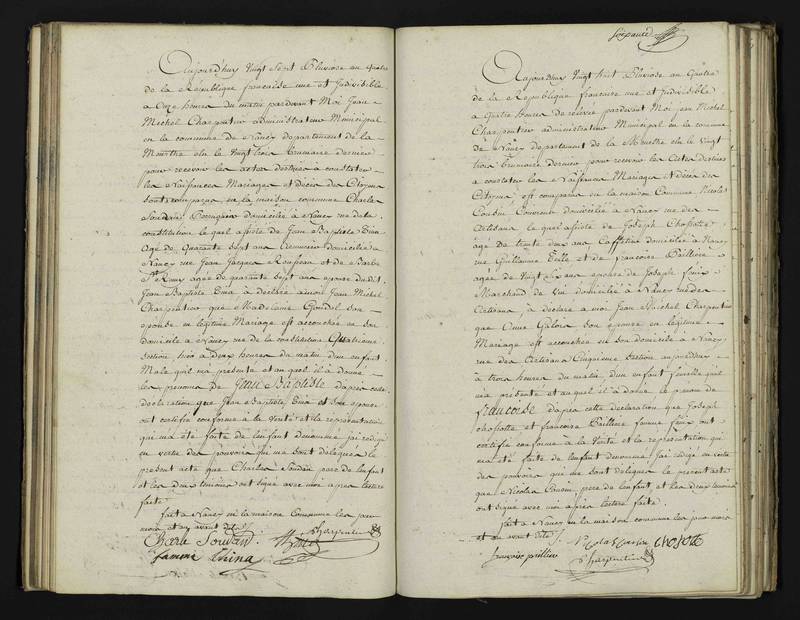 Aujourd'huy Vingt Sept Pluviose an quatre
de la République française une et Indivisible
a Onze heures du matin pardevant Moi Jean
Michel Charpentier administrateur Municipal
en la commune de Nancy departement de la
Meurthe elu le Vingt trois brumaire dernier
pour recevoir les actes destinés à constater
les Naissances Mariages et décès des Citoyens
sont comparus en la maison commune Charles
Soudan domicilié à Nancy rue de la
constitution le quel assisté de Jean Baptiste
Agé de Quarante Sept ans domicilié à
Nancy rue Jean Jacques Rousseau et de Barbe
St Remy agée de quarante sept ans epouse dudit
Jean Baptiste a déclaré à moi Jean Michel
Charpentier que Madelaine son
epouse en légitime Mariage est accouchée en son
domicile à Nancy rue de la constitution Quatrieme
Section hier à deux heures du matin d'un enfant
Male qu'il m'a presenté et au quel il a donné
les prenoms de Jean Baptiste d'après cette
declaration que Jean Baptiste et son epouse
ont certifié conforme à la Vérité et la représentation
qui m'a été faite de l'enfant denommé j'ai redigé
en vertu des pouvoirs qui me sont délégués le
présent acte que Charles Soudan pere de l'enfant
et les deux témoins ont signé avec moi après lecture
faite
fait à Nancy en la maison Commune les jour
mois et an avant dits
Charle Soudan Charpentier
famme
Aujourd'huy Vingt huit Pluviose an Quatre
de la République francaise une et Indivisible
a Quatre heures de relevée pardevant Moi jean Michel
Charpentier administrateur Municipal en la commune
de Nancy departement de la Meurthe elu le Vingt
trois brumaire dernier pour recevoir les Actes destinés
a constater les Naissances Mariages et décès des
Citoyens est comparu en la maison Commune Nicolas
Cousin domicilié à Nancy rue des
Artisans le quel assisté de Joseph Chopotte
agé de trente deux ans Caffetier domicilié à Nancy
rue Guillaume Telle et de francoise
agée de Vingt Six ans epouse de Joseph
Marchand de Vin domicilié à Nancy rue des
Artisans, à déclaré a moi Jean Michel Charpentier
que Anne Galois son epouse en légitime
Mariage est accouchée en son domicile à Nancy
rue des Artisans Cinquieme Section aujourd'huy
à trois heures du matin d'un enfant femelle qu'il
m'a presenté et auquel il à donné le prenom de
francoise d'après cette declaration que Joseph
chopotte et francoise femme ont
certifié conforme à la Vérité et la representation qui
m'a été faite de l'enfant denommé j'ai redigé en vertu
des pouvoirs qui me sont délégués le présent acte
que Nicolas Cousin pere de l'enfant et les deux temoins
ont signé avec moi après lecture faite
fait à Nancy en la maison commune les jour mois
et an avant dits
Nicolas Cousin chopotte
françoise Charpentier